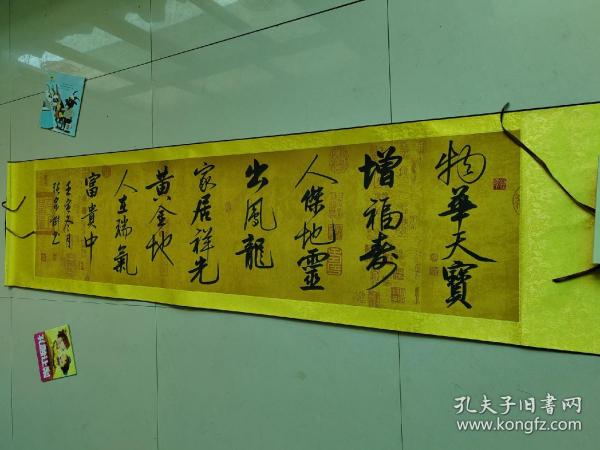 物華天寶
增福壽
人傑地靈
出鳳龍
家居祥光
黃金地
人在瑞氣
富貴中
壬寅冬月
孔夫子旧书网
www.kongfz.com